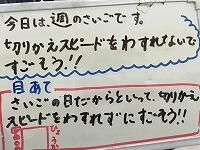 今日は、週のさいごです。
切りかえスピードをわすれないで
すごそう!!
目あて
さいごの日だからといって、切りかえ
スピードをわすれずにすごそう!!